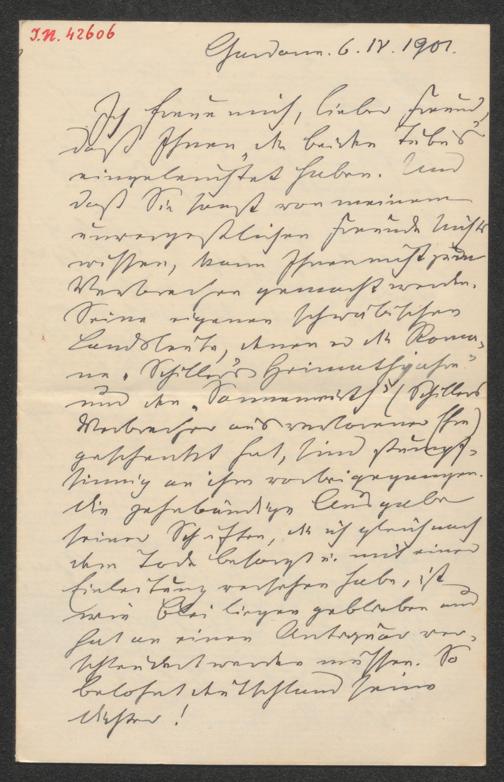 I.N. 42606
Gardone. 6. IV. 1901.
Ich freue mich, lieber Freund,
daß Ihnen „die beiden Tubus“
eingeleuchtet haben. Und
daß Sie sonst von meinem
unvergeßlichen Freunde nichts
wissen, kann Ihnen nicht zum
Verbrechen gemacht werden.
Seine eigenen schwäbischen
Landsleute, denen er die Roma-
ne „Schillers Heimathjahre“
und den „Sonnenwirth“ (Schillers
Verbrecher aus verlorener Ehre)
geschenkt hat, sind stumpf-
sinnig an ihm vorbeigegangen.
Die zehnbändige Ausgabe
seiner Schriften, die ich gleich nach
dem Tode besorgt u. mit einer
Einleitung versehen habe, ist
wie Blei liegen geblieben und
hat an einen Antiquar ver-
schleudert werden müssen. So
belohnt Deutschland seine
Dichter!